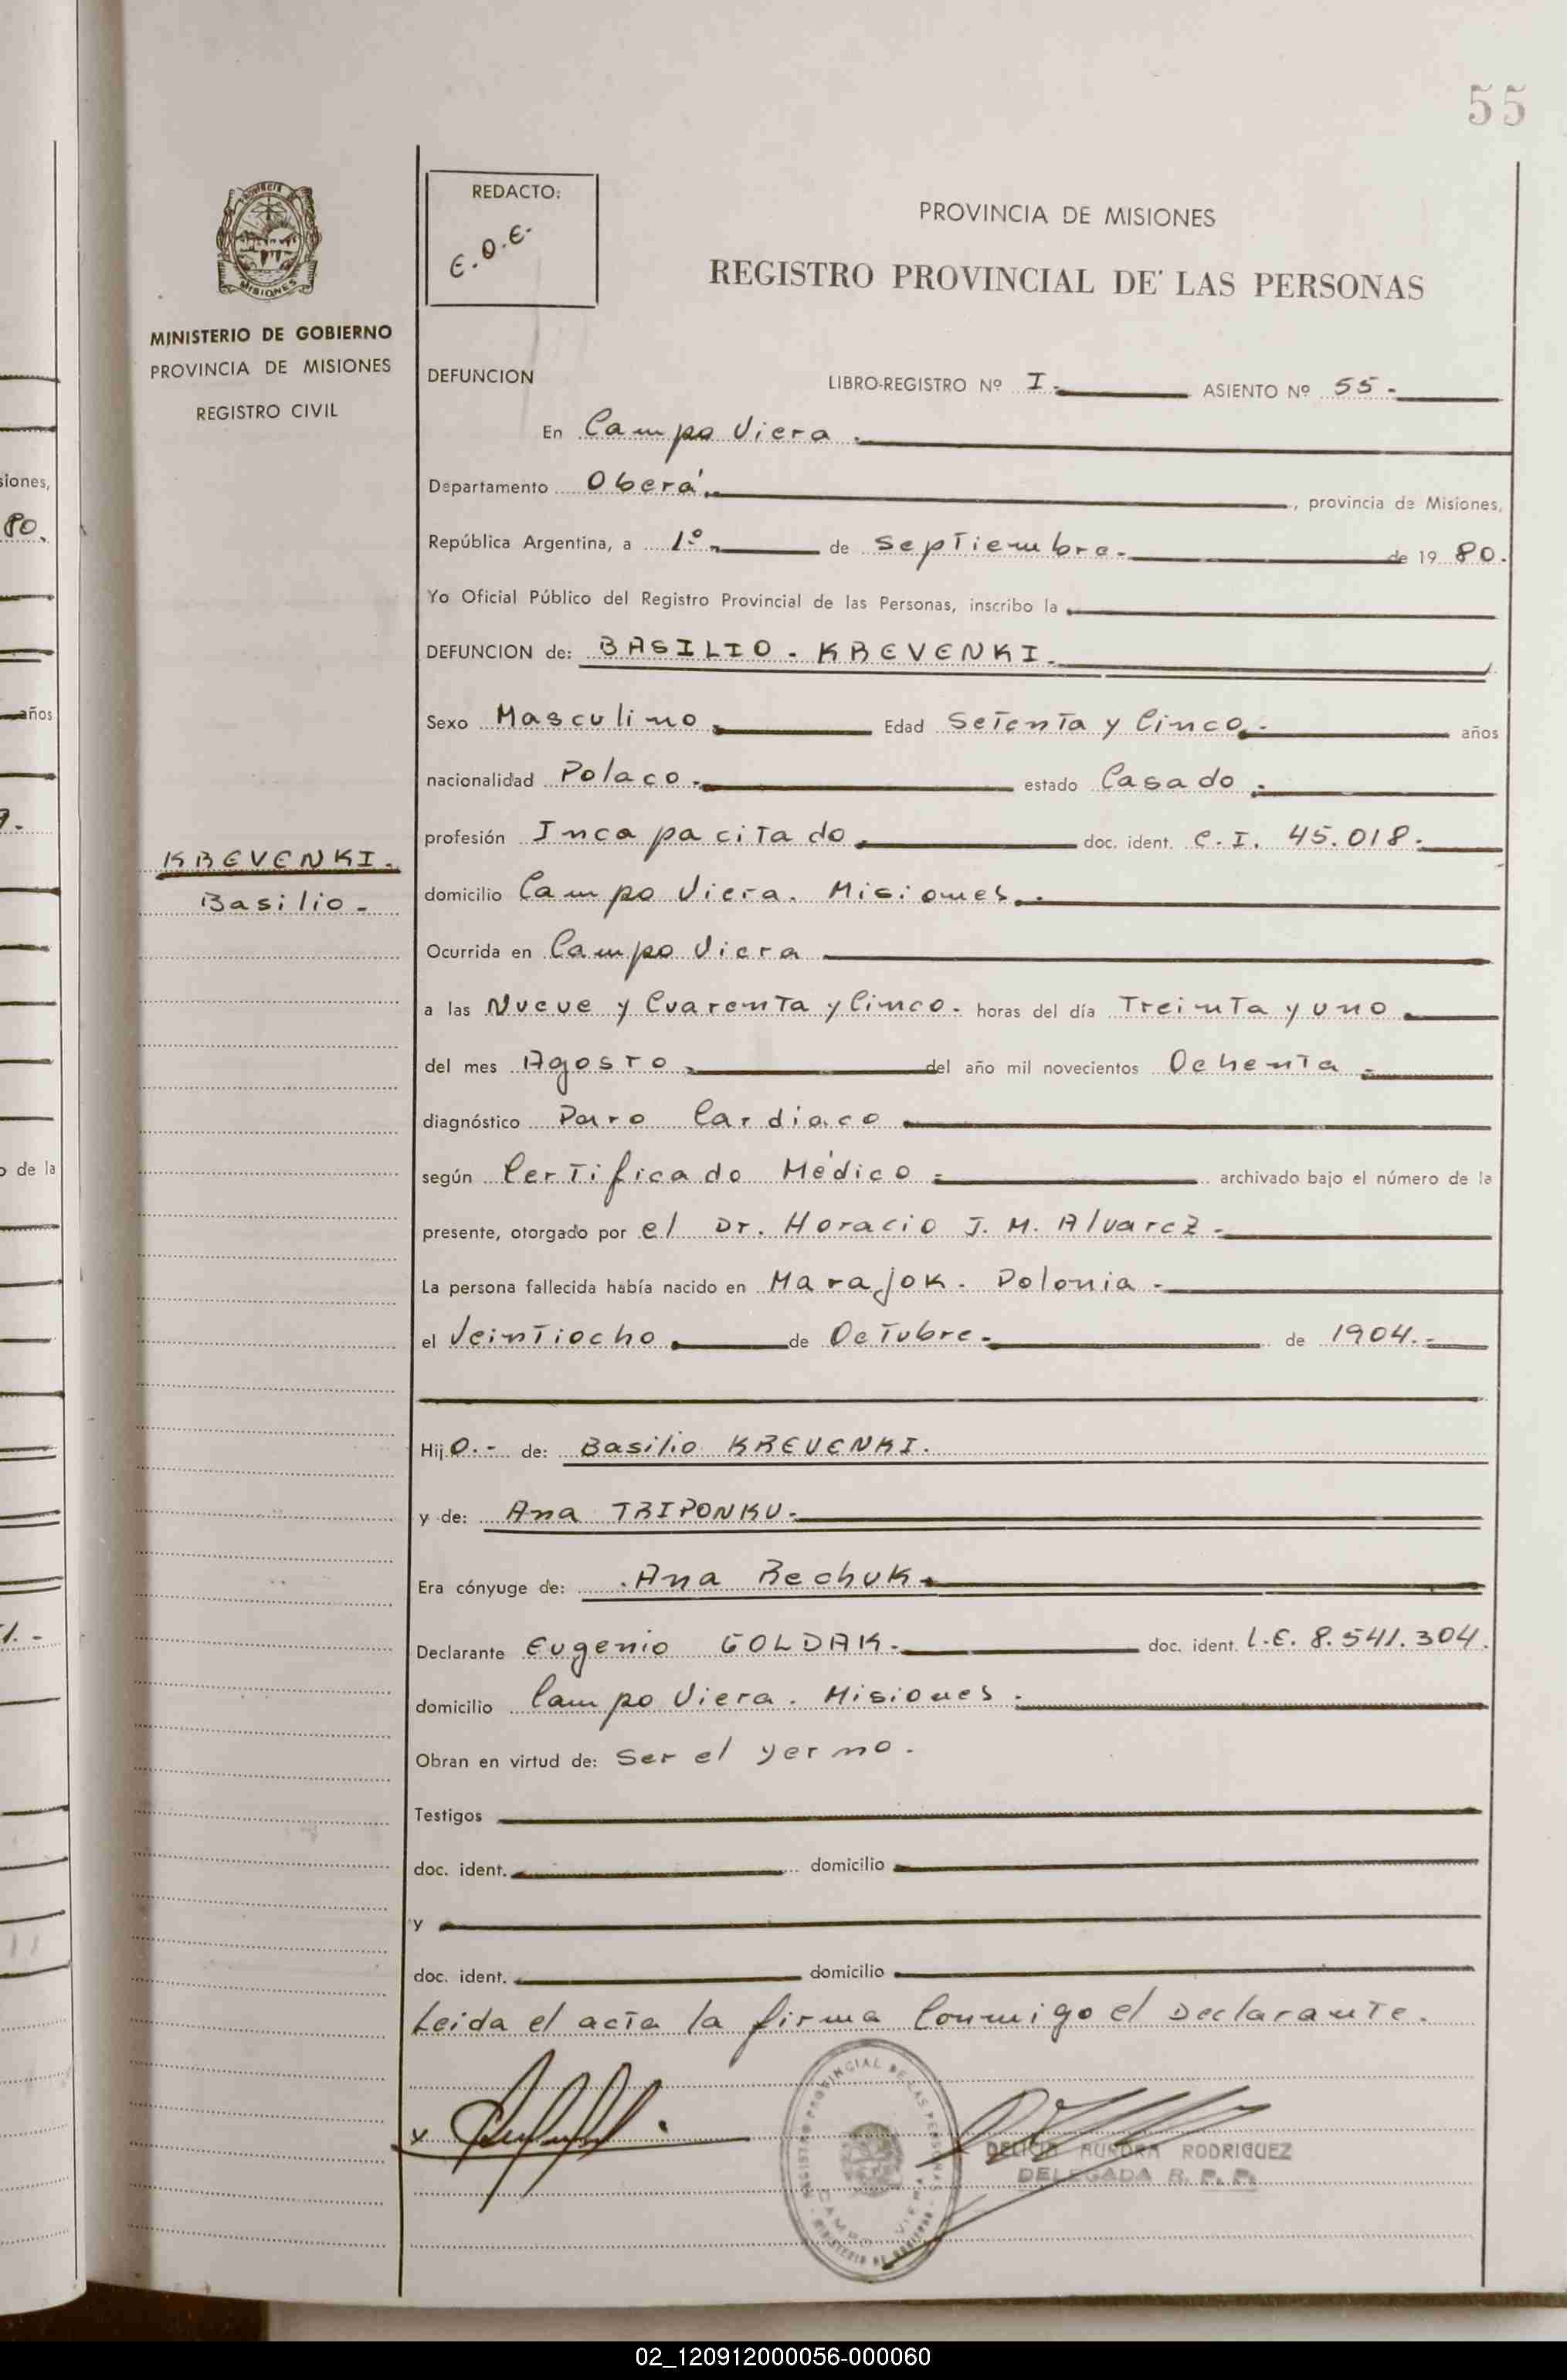 55
REDACTO:
E.O.E.
PROVINCIA DE MISIONES
REGISTRO PROVINCIAL DE LAS PERSONAS
MISIONES
MINISTERIO DE GOBIERNO
PROVINCIA DE MISIONES
REGISTRO CIVIL
KREVENKI.
Basilio.-
DEFUNCION LIBRO-REGISTRO Nº I.- ASIENTO Nº 55.-
En Campo Viera.
Departamento Oberá., provincia de Misiones,
República Argentina, a 1º- de Septiembre.- de 1980.
Yo Oficial Público del Registro Provincial de las Personas, inscribo la
DEFUNCION de: BASILIO - KREVENKI.
Sexo Masculino. Edad Setenta y Cinco.- años
nacionalidad Polaco.- estado Casado.
profesión Incapacitado. doc. ident. C.I. 45.018.
domicilio Campo Viera. Misiones.-
Ocurrida en Campo Viera
a las Nueve y Cuarenta y Cinco.- horas del día Treinta y uno
del mes Agosto del año mil novecientos Ochenta
diagnóstico Paro Cardiaco
según Certificado Médico archivado bajo el número de la
presente, otorgado por el Dr. Horacio J. M. Alvarez.-
La persona fallecida había nacido en Marajok. Polonia.-
el Veintiocho de Octubre.- de 1904.-
Hijo.- de: Basilio KREVENKI.
y de: Ana TRIPONKU.-
Era cónyuge de: Ana Rechuk.
Declarante Eugenio GOLDAK.- doc. ident. L.E. 8.541.304.
domicilio Campo Viera. Misiones.
Obran en virtud de: Ser el yerno.
Testigos
doc. ident. domicilio
y
doc. ident. domicilio
Leida el acta la firma Conmigo el Declarante.
x
DELICIA AURORA RODRIGUEZ
DELEGADA R. P. P.
REGISTRO PROVINCIAL DE LAS PERSONAS
CAMPO VIERA
MINISTERIO DE GOBIERNO
siones,
80.
años
9.-
o de la
1.-
02_120912000056-000060